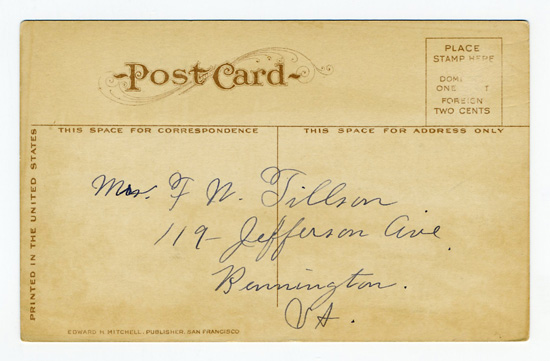 PLACE
STAMP HERE
Post Card
ONE
FOREIGN
TWO CENTS
THIS SPACE FOR CORRESPONDENCE
THIS SPACE FOR ADDRESS ONLY
PRINTED IN THE UNITED STATES
Mrs. F W. Tillson
119- Jefferson Ave.
Bennington.
Vt.
EDWARD H. MITCHELL, PUBLISHER, SAN FRANCISCO